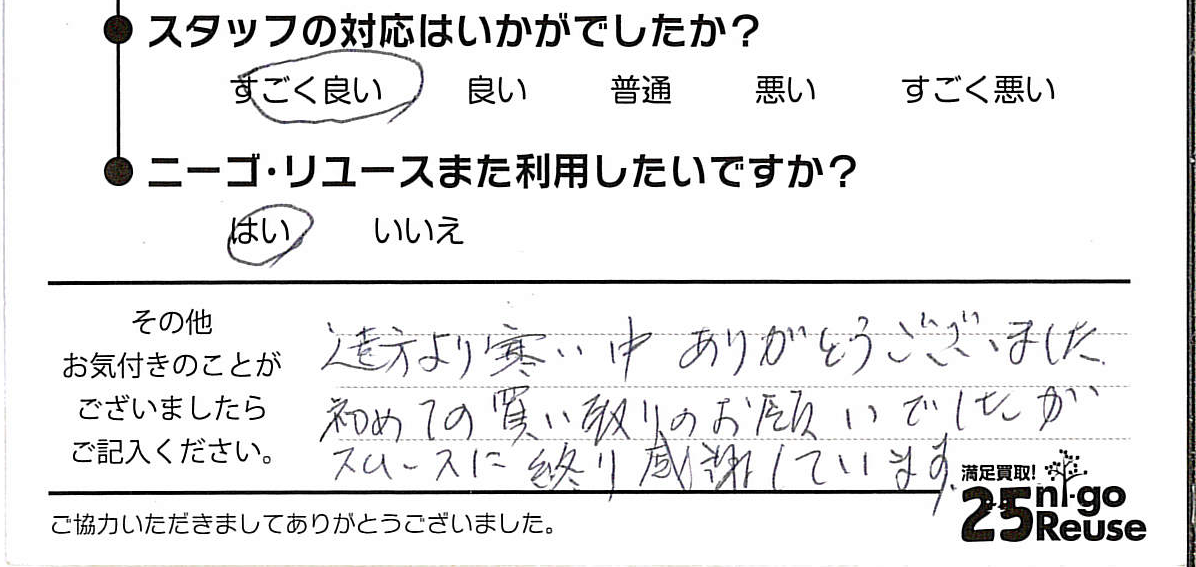 スタッフの対応はいかがでしたか?
すごく良い 良い 普通 悪い すごく悪い
ニーゴ・リユースまた利用したいですか?
はい いいえ
その他
お気付きのことが
ございましたら
ご記入ください。
遠方より寒い中 ありがとうございました
初めての買い取りのお願いでしたが
スムースに終り感謝しています。
満足買取!
25 ni-go
Reuse
ご協力いただきましてありがとうございました。